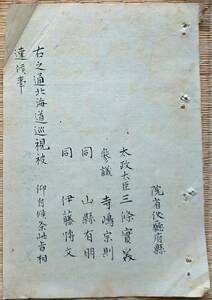 院省使廳府縣
太政大臣三條實美
參議 寺嶋宗則
同 山縣有朋
同 伊藤博文
右之通北海道巡視被 仰付候条此旨相
達候事